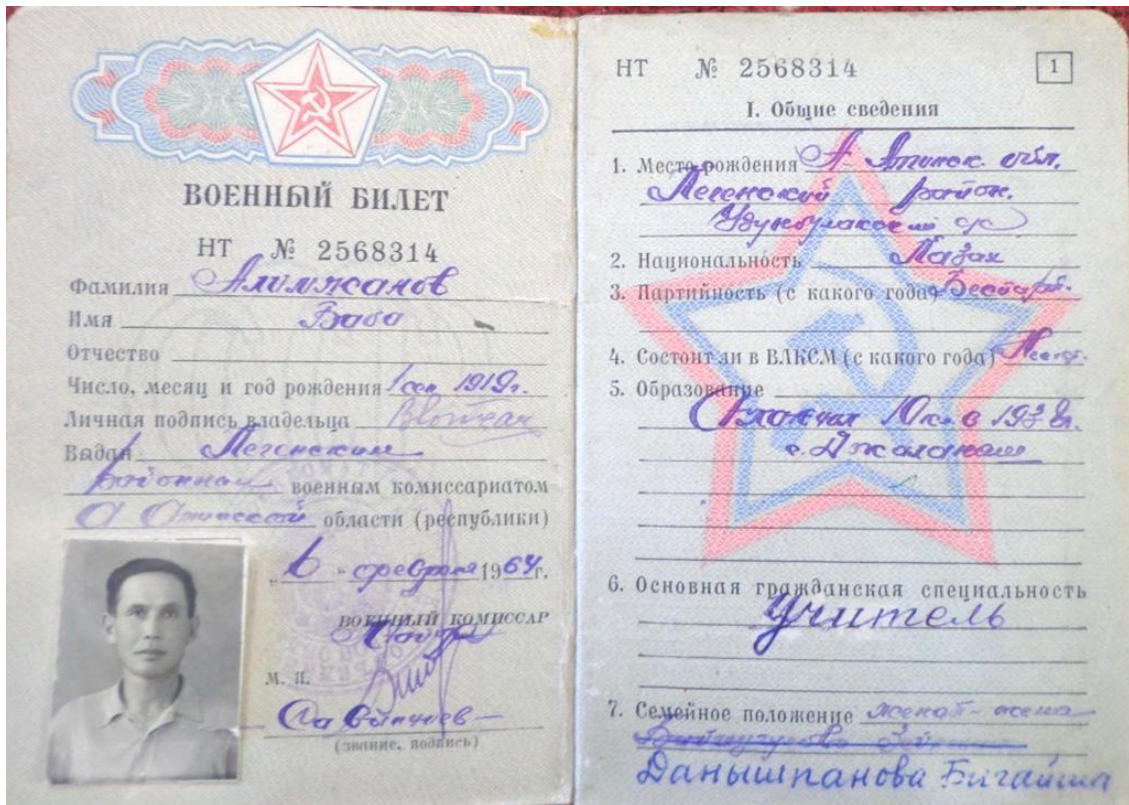 ВОЕННЫЙ БИЛЕТ
НТ № 2568314
Фамилия Алимжанов
Имя Баба
Отчество
Число, месяц и год рождения 1 сен 1919г.
Личная подпись владельца
Выдан Кегенским
районным военным комиссариатом
А Атинской области (республики)
„6 " февраля 1964г.
ВОЕННЫЙ КОМИССАР
М. П.
(звание, подпись)
НТ № 2568314
1
I. Общие сведения
1. Место рождения А-Атинск. обл.
Кегенский район.
с/с
2. Национальность Казах
3. Партийность (с какого года) Беспарт.
4. Состоит ли в ВЛКСМ (с какого года)
5. Образование
Окончил 10 кл. в 1938г.
с. Джаланаш
6. Основная гражданская специальность
Учитель
7. Семейное положение женат - жена
Данышпанова Бигайша